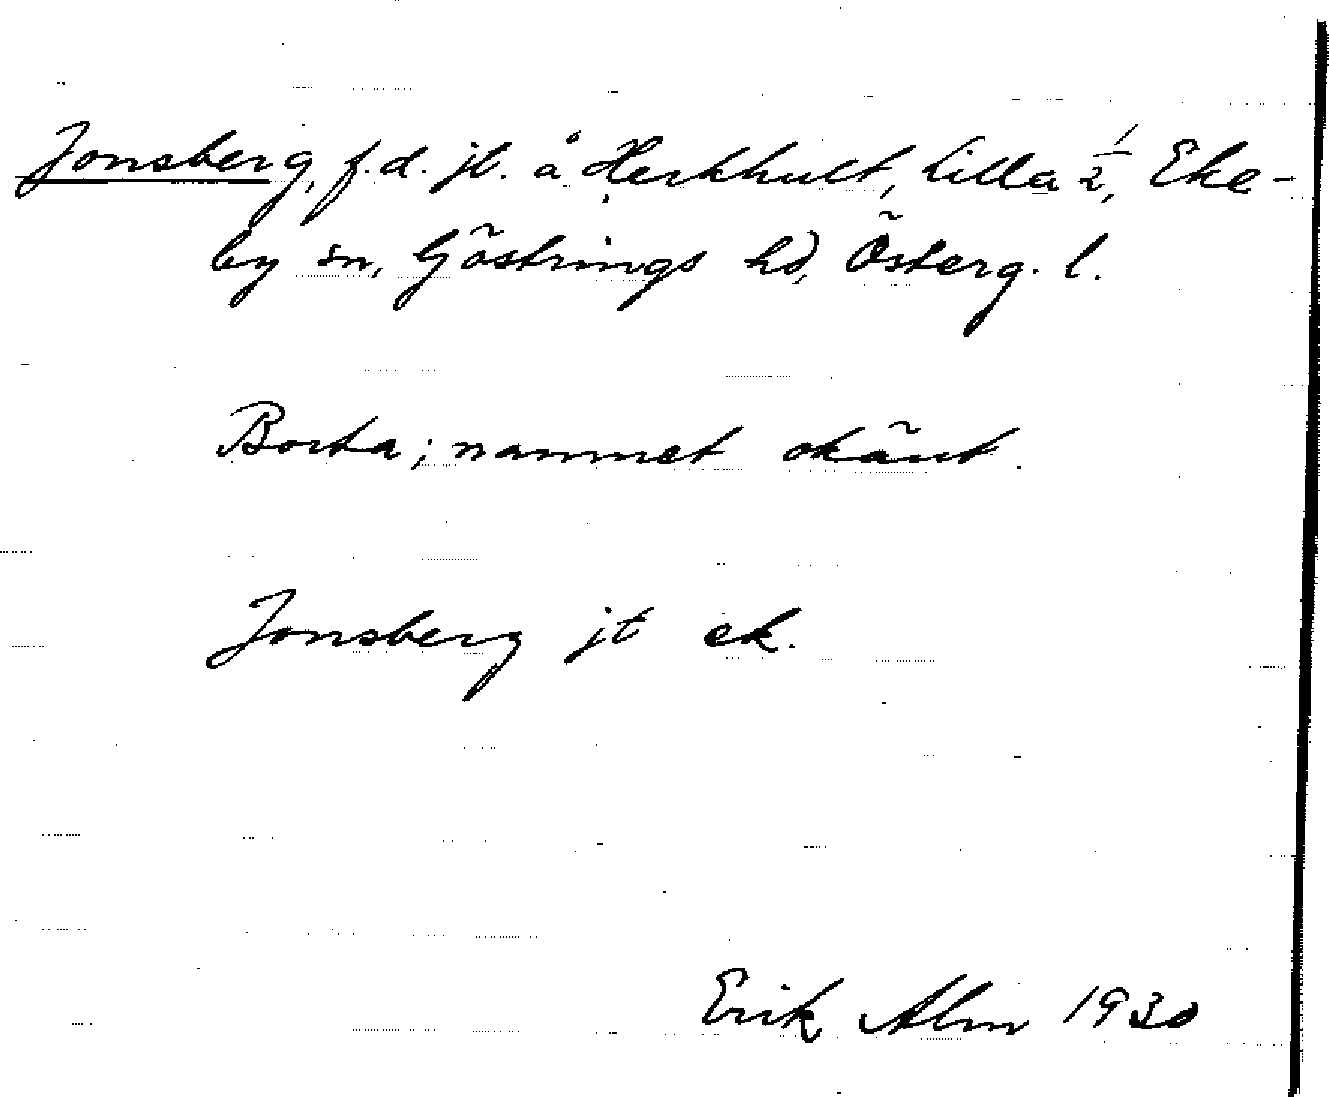 Jonsberg, f.d. jt. å Herkhult, Lilla 1/2, Eke-
by sn, Göstrings hd, Österg. l.
Borta; namnet okänt.
Jonsberg jt ek.
Erik Alm 1930